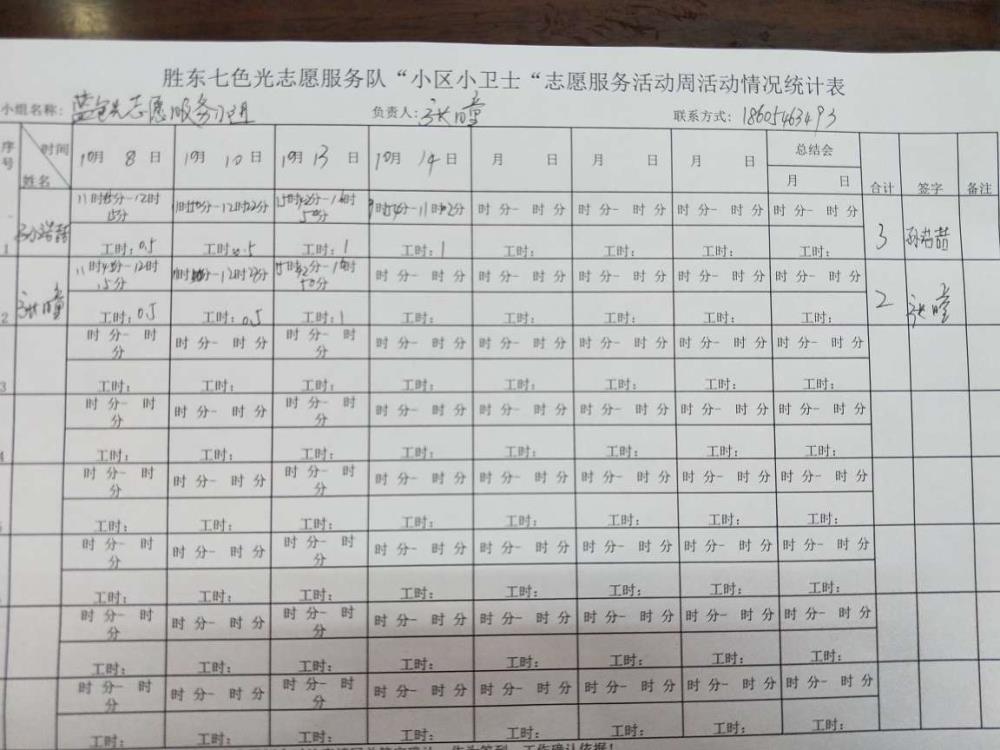 胜东七色光志愿服务队“小区小卫士“志愿服务活动周活动情况统计表
小组名称：蓝色光志愿服务小组 负责人：张瞳 联系方式：18605463493
序号 时间 姓名 10月 8 日 10月 10 日 10月 13 日 10月 14 日 月 日 月 日 月 日 总结会 月 日 合计 签字 备注
1 11时45分-12时15分 12时22分 15时42分-16时50分 时 分- 时 分 时 分- 时 分 时 分- 时 分 时 分- 时 分 3
工时：0.5 工时：0.5 工时：1 工时：1 工时： 工时： 工时： 工时：
2 张瞳 11时45分-12时15分 15时42分-16时50分 时 分- 时 分 时 分- 时 分 时 分- 时 分 时 分- 时 分 时 分- 时 分 2 张瞳
工时：0.5 工时：0.5 工时：1 工时： 工时： 工时： 工时： 工时：
3 时 分- 时 分 时 分- 时 分 时 分- 时 分 时 分- 时 分 时 分- 时 分 时 分- 时 分 时 分- 时 分 时 分- 时 分
工时： 工时： 工时： 工时： 工时： 工时： 工时： 工时：
4 时 分- 时 分 时 分- 时 分 时 分- 时 分 时 分- 时 分 时 分- 时 分 时 分- 时 分 时 分- 时 分 时 分- 时 分
工时： 工时： 工时： 工时： 工时： 工时： 工时： 工时：
时 分- 时 分 时 分- 时 分 时 分- 时 分 时 分- 时 分 时 分- 时 分 时 分- 时 分 时 分- 时 分 时 分- 时 分
工时： 工时： 工时： 工时： 工时： 工时： 工时： 工时：
时 分- 时 分 时 分- 时 分 时 分- 时 分 时 分- 时 分 时 分- 时 分 时 分- 时 分 时 分- 时 分 时 分- 时 分
工时： 工时： 工时： 工时： 工时： 工时： 工时： 工时：
时 分- 时 分 时 分- 时 分 时 分- 时 分 时 分- 时 分 时 分- 时 分 时 分- 时 分 时 分- 时 分 时 分- 时 分
工时： 工时： 工时： 工时： 工时： 工时： 工时： 工时：
时 分- 时 分 时 分- 时 分 时 分- 时 分 时 分- 时 分 时 分- 时 分 时 分- 时 分 时 分- 时 分 时 分- 时 分
工时： 工时： 工时： 工时： 工时： 工时： 工时： 工时：